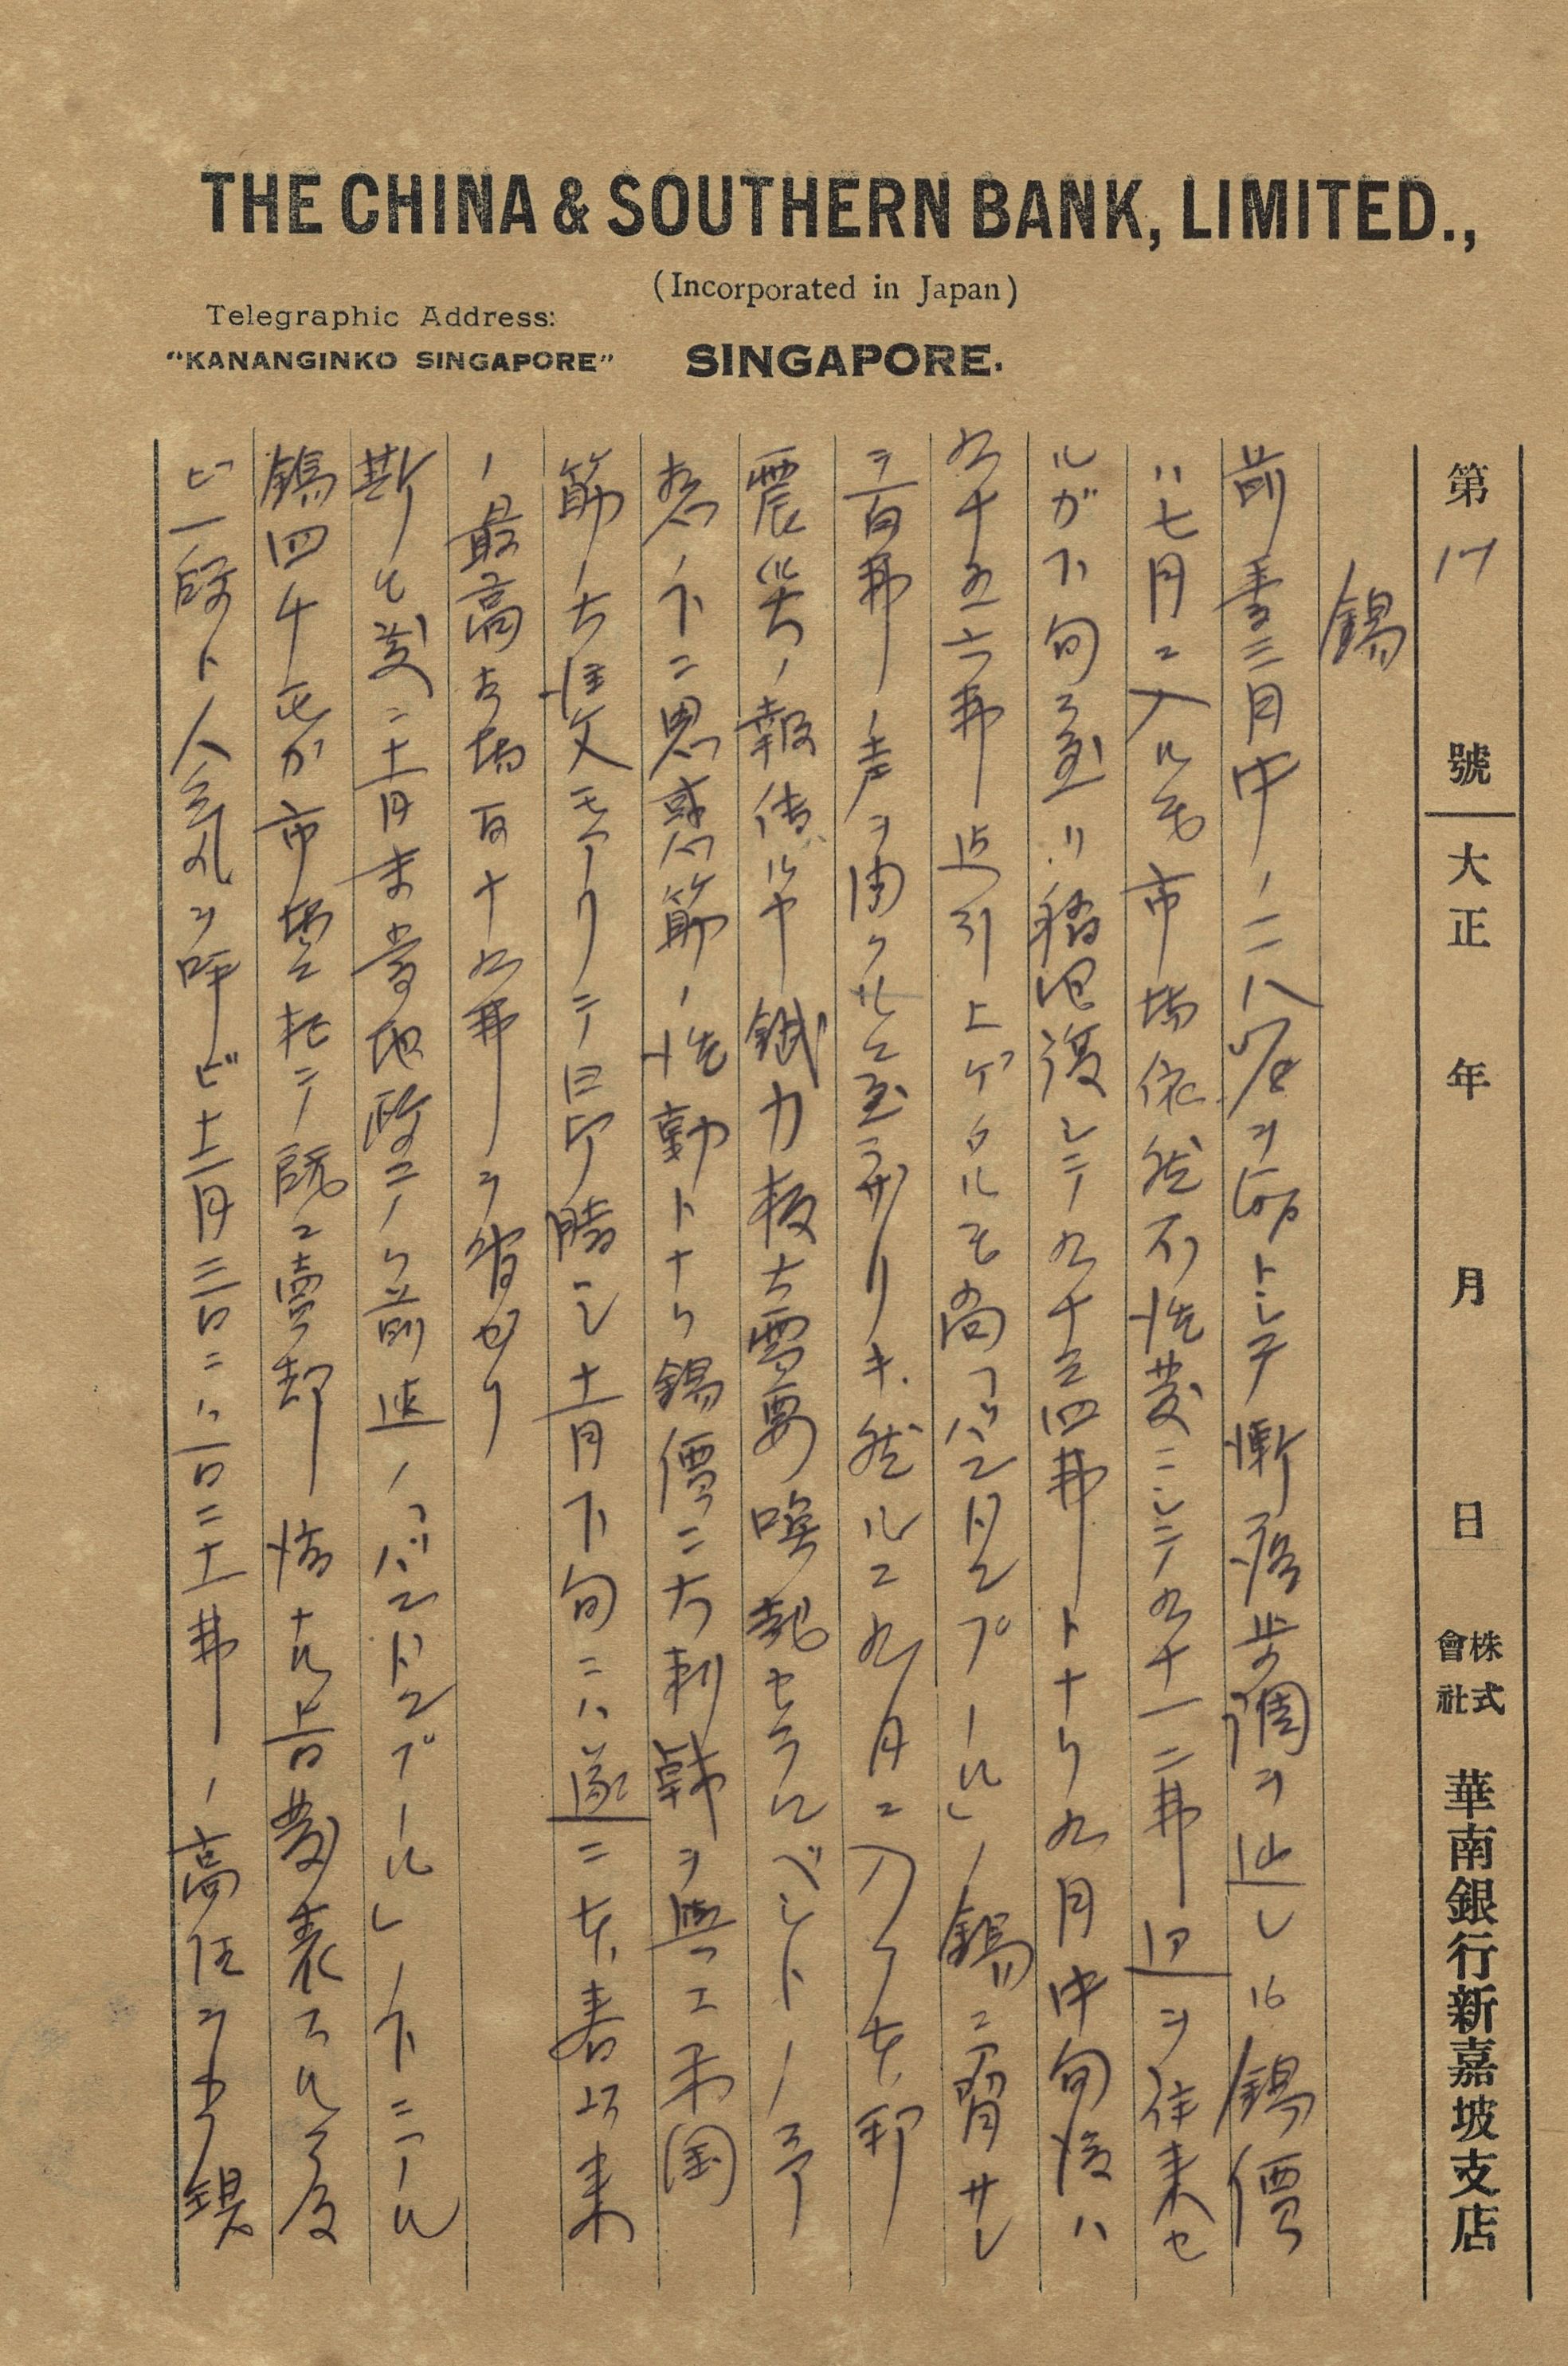 THE CHINA & SOUTHERN BANK, LIMITED.,
(Incorporated in Japan)
Telegraphic Address:
"KANANGINKO SINGAPORE"
SINGAPORE.
第17號 大正 年 月 日 株式會社 華南銀行新嘉坡支店
錫
前季三月中ノ一二八弗ヲトシテ漸落歩調ヲ辿レル錫價
ハ七月ニ入ルモ市場依然不活發ニシテ九十一二弗迎ヲ往来セ
ルガ下旬ヨリ稍回復シテ九十三四弗トナリ九月中旬後ハ
九十五六弗迄引上ゲタルモ尚「バンドンプール」ノ錫ニ脅サレ
百弗ノ声ヲ聞クニ至ラザリキ然ルニ九月ニ入リ本邦
震災ノ報傳ルヤ鉄力板大需要喚起セラルベシトノ予
想ノ下ニ思惑筋ノ活動トナリ錫價ニ大刺戟ヲ與エ米國
筋ノ大注文モアリテ昂騰シ十一月下旬ニハ遂ニ本春以来
ノ最高市場百十九弗ヲ
斯ル處ニ十一月末當地政ノ前途ノ「バンドンプール」ノ下ニアル
錫四千屯ガ市場ニ於テ既ニ賣却済ナル旨發表セラルルニ及
ビ一段ト人気ヲ呼ビ十二月三日ニハ百二十弗ノ高値ヲ